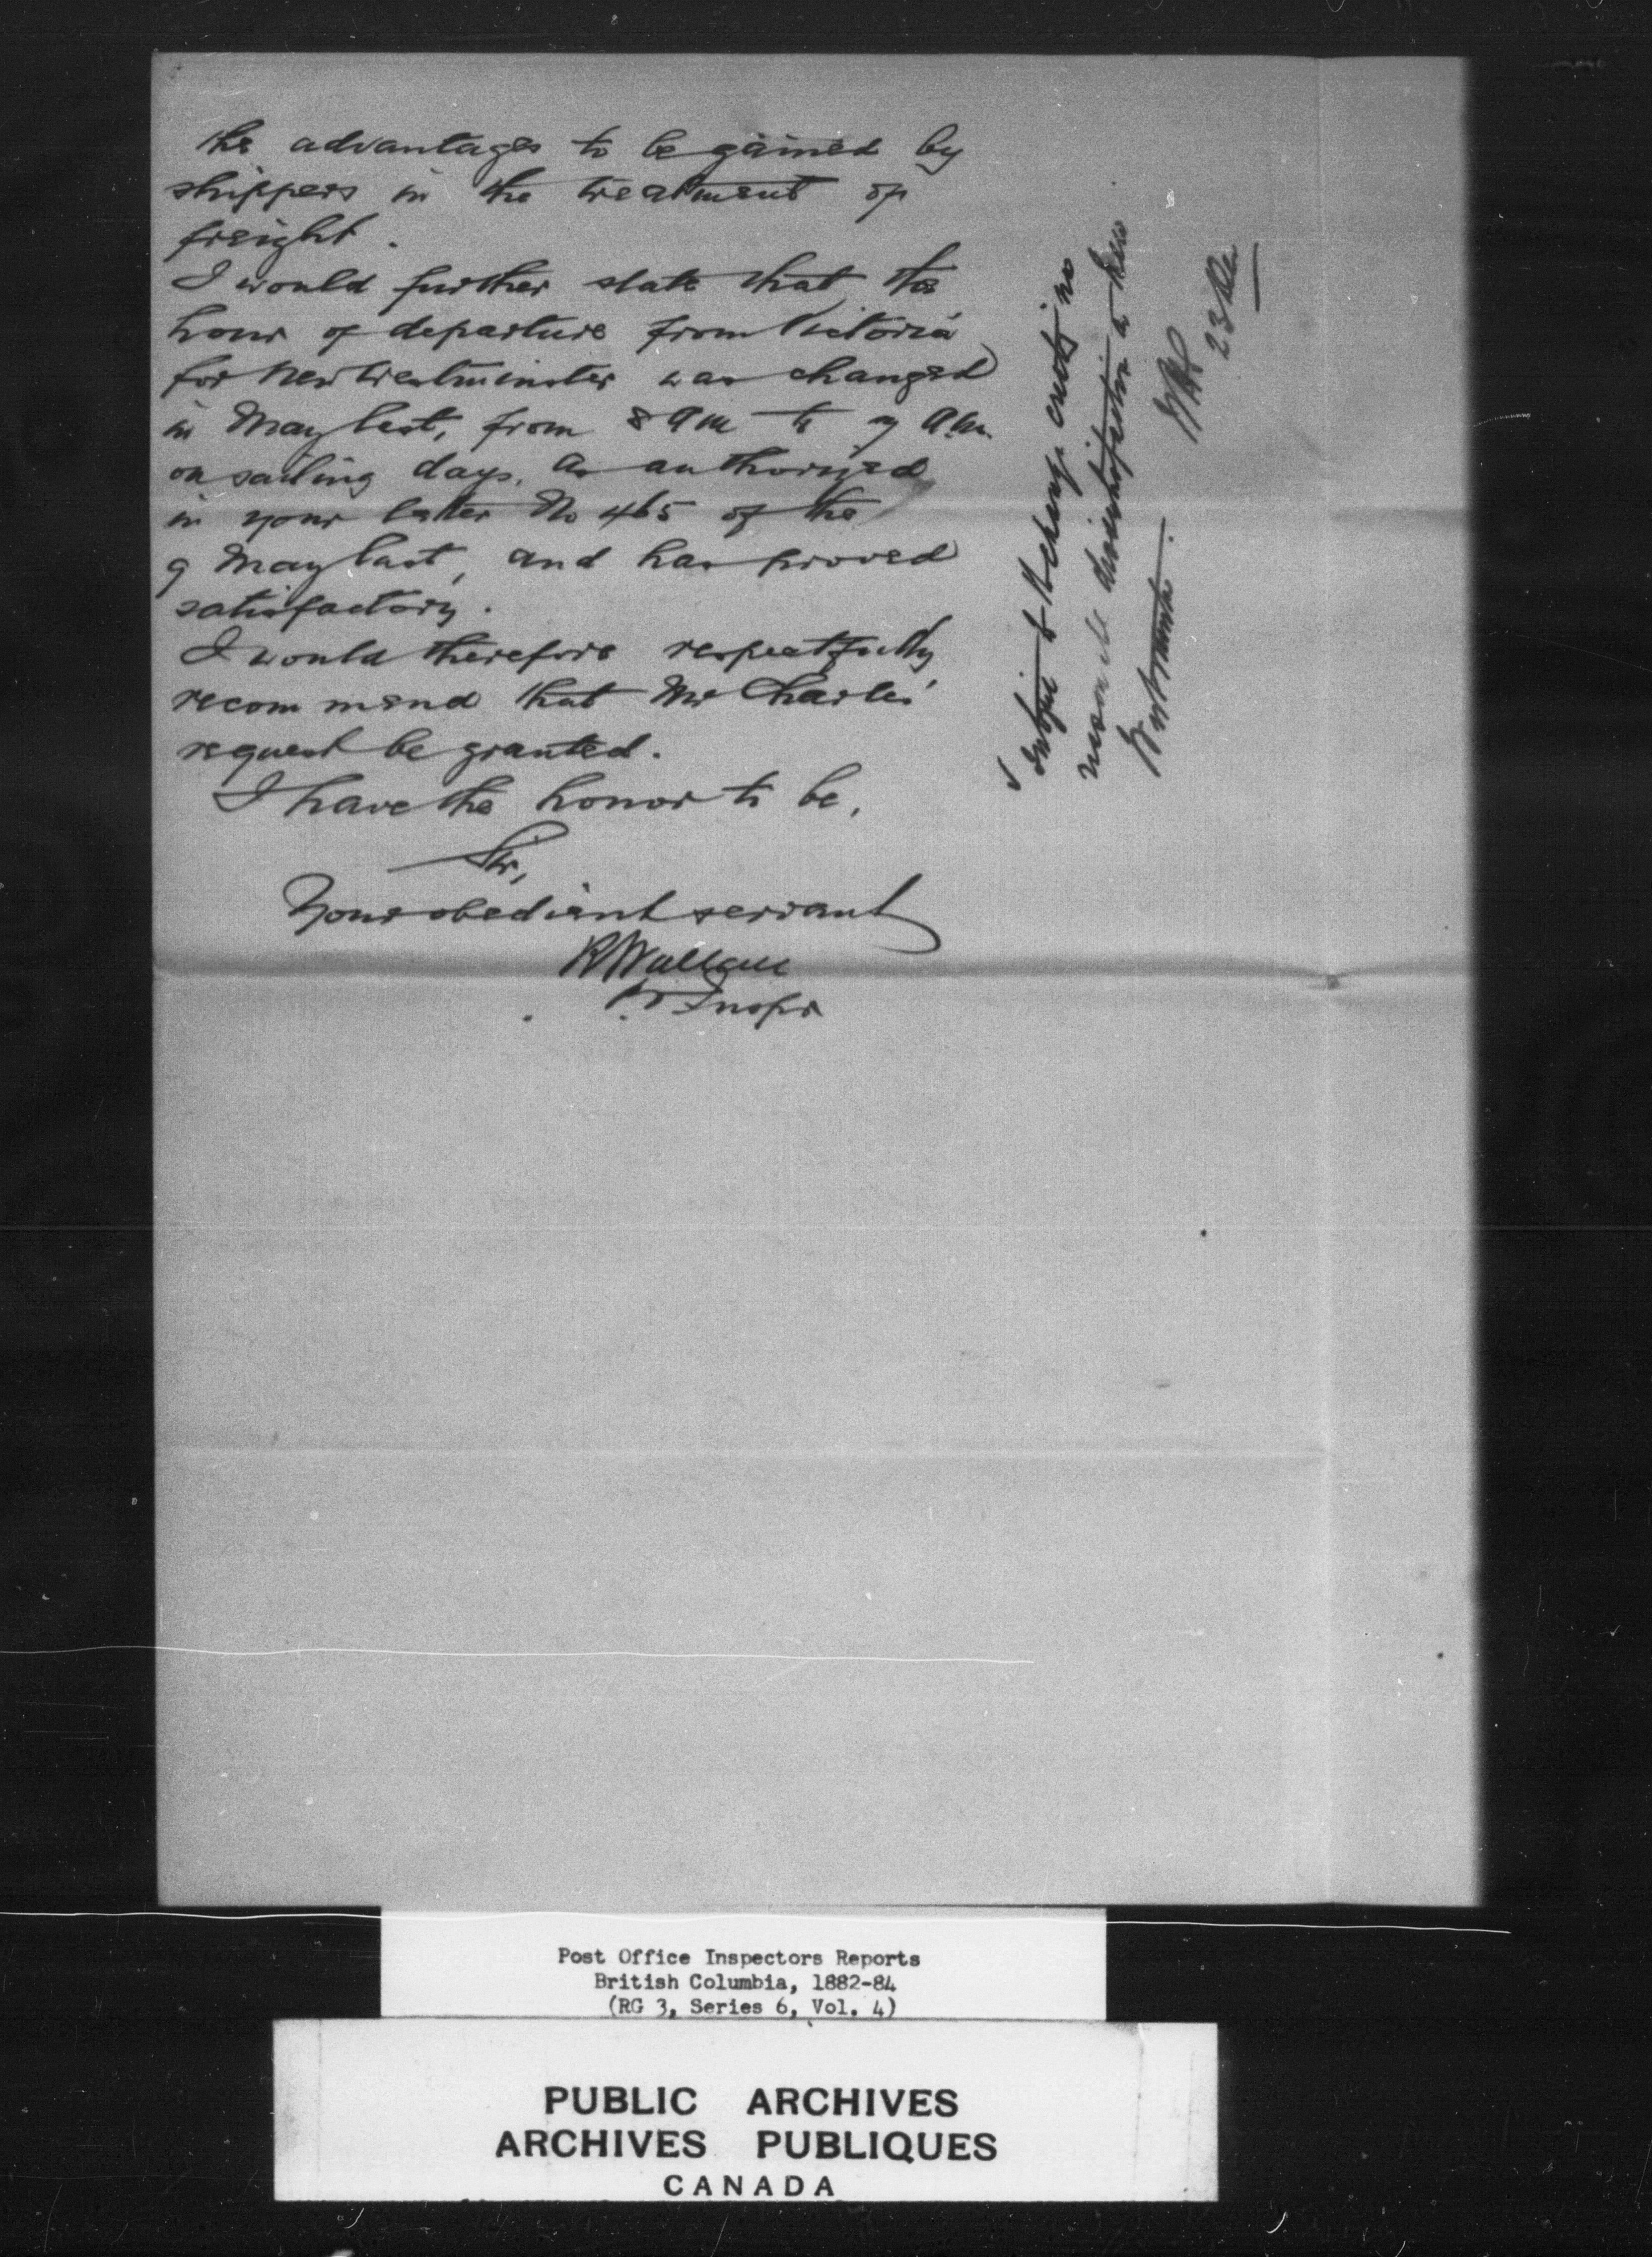 the advantages to be gained by
shippers in the treatment of
freight.
I would further state that the
hour of departure from Victoria
for New Westminster was changed
in May last, from 8 am to 7 a.m.
on sailing days, as authorized
in your letter No 465 of the
9 May last, and has proved
satisfactory.
I would therefore respectfully
recommend that Mr Charles'
request be granted.
I have the honor to be,
Sir,
Your obedient servant
R Wallace
P.O Inspr
Subject to the change creating no
dissatisfaction in New
Westminster.
23 Dec
Post Office Inspectors Reports
British Columbia, 1882-84
(RG 3, Series 6, Vol. 4)
PUBLIC ARCHIVES
ARCHIVES PUBLIQUES
CANADA